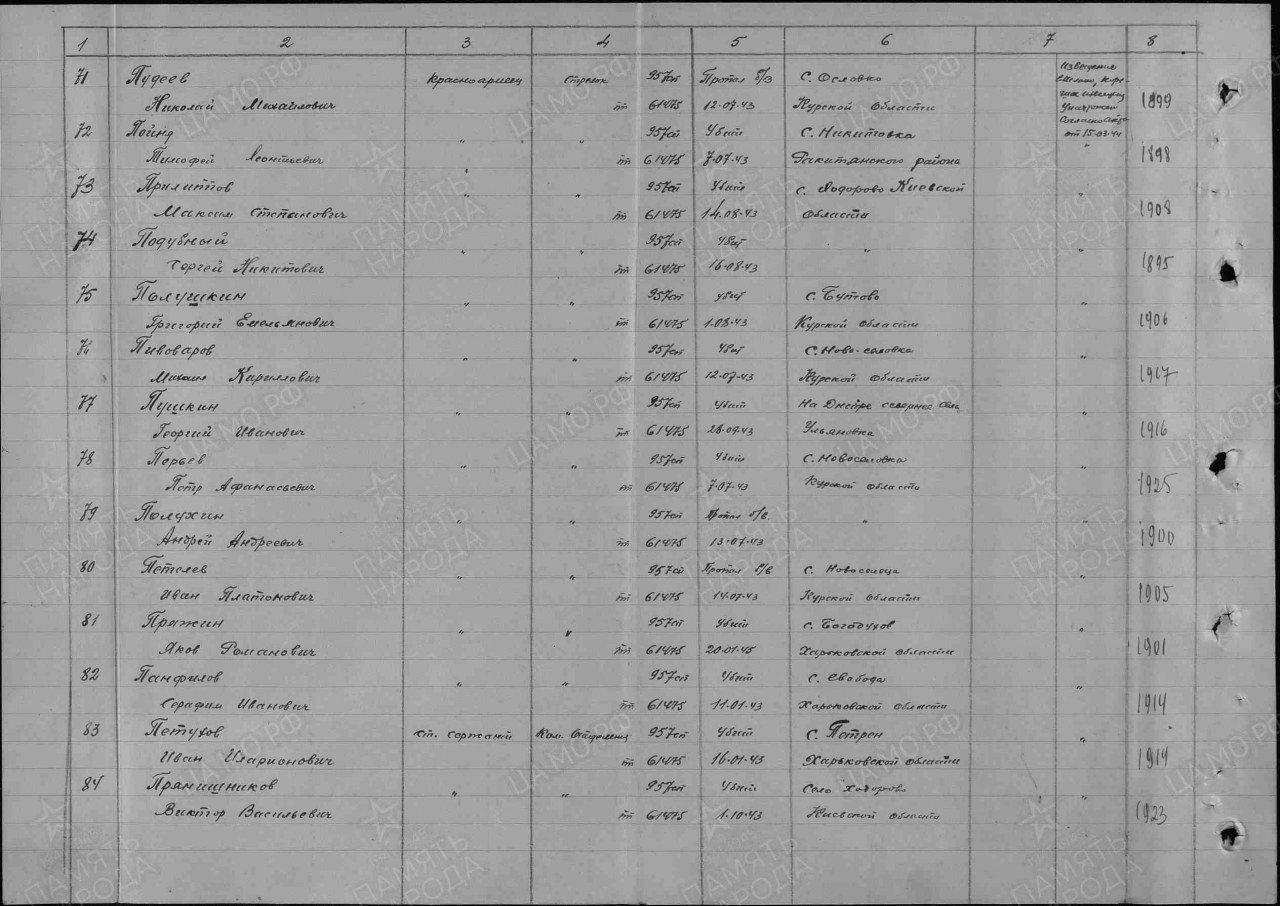 1 2 3 4 5 6 7 8
71 Пудеев Красноармеец стрелок 957сп Пропал б/в с. Ословко Извещения
Николай Михайлович пп 61475 12.07.43 Курской области 1899
72 Пойнд " " 957сп Убит с. Никитовка от 15.03.44
Тимофей Леонтьевич пп 61475 7.07.43 Ракитянского района " 1898
73 Прилиппов " " 957сп Убит с. Ходорово Киевской "
Максим Степанович пп 61475 14.08.43 области 1908
74 Подубный " " 957сп убит " "
Сергей Никитович пп 61475 16.08.43 1895
75 Полушкин " " 957сп убит с. Бутово "
Григорий Емельянович пп 61475 1.08.43 Курской области 1906
76 Пивоваров " " 957сп убит с. Ново-селовка "
Михаил Кириллович пп 61475 12.07.43 Курской области 1917
77 Пушкин " " 957сп убит на Днепре севернее
Георгий Иванович пп 61475 28.09.43 Ульяновка 1916
78 Перьев " " 957сп Убит с. Новоселовка "
Петр Афанасьевич пп 61475 7.07.43 Курской области 1925
79 Полухин " " 957сп Пропал б/в " "
Андрей Андреевич пп 61475 13.07.43 1900
80 Петелев " " 957сп Пропал б/в с. Новоселица "
Иван Платонович пп 61475 14.07.43 Курской области 1905
81 Пряжин " " 957сп Убит с. Богодухов "
Яков Романович пп 61475 20.01.45 Харьковской области 1901
82 Панфилов " " 957сп Убит с. Свобода "
Серафим Иванович пп 61475 11.01.43 Харьковской области 1914
83 Петухов ст. сержант Ком. отделения 957сп Убит с. Патрен "
Иван Иларионович пп 61475 16.01.43 Харьковской области 1914
84 Прянишников " " 957сп Убит Село Ходорово "
Виктор Васильевич пп 61475 1.10.43 Киевской области 1923